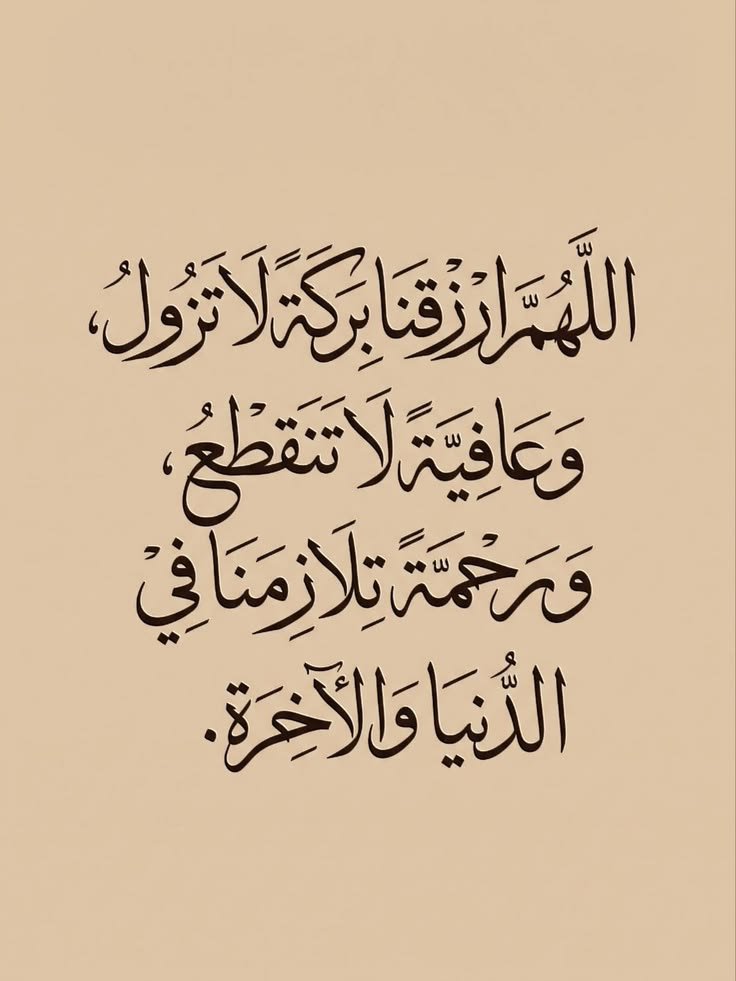 اللَّهُمَّ ارْزْقنَا بِرَكَةً لَا تَزُولُ،
وَعَافِيَّةً لَا تَنَقْطعُ،
وَرَحْمَّةً تِلَازِمَنَا فِيْ
الدُّنيَا وَالْآخِرَة.